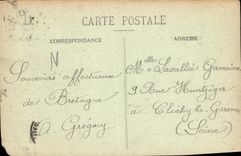 CARTE POSTALE
CORRESPONDANCE
ADRESSE
N
Souvenir affectueux
de Bretagne
A. Grégory
Melle Lavallée Germaine
9 Rue Huntziger
à Clichy la Garenne
(Seine)